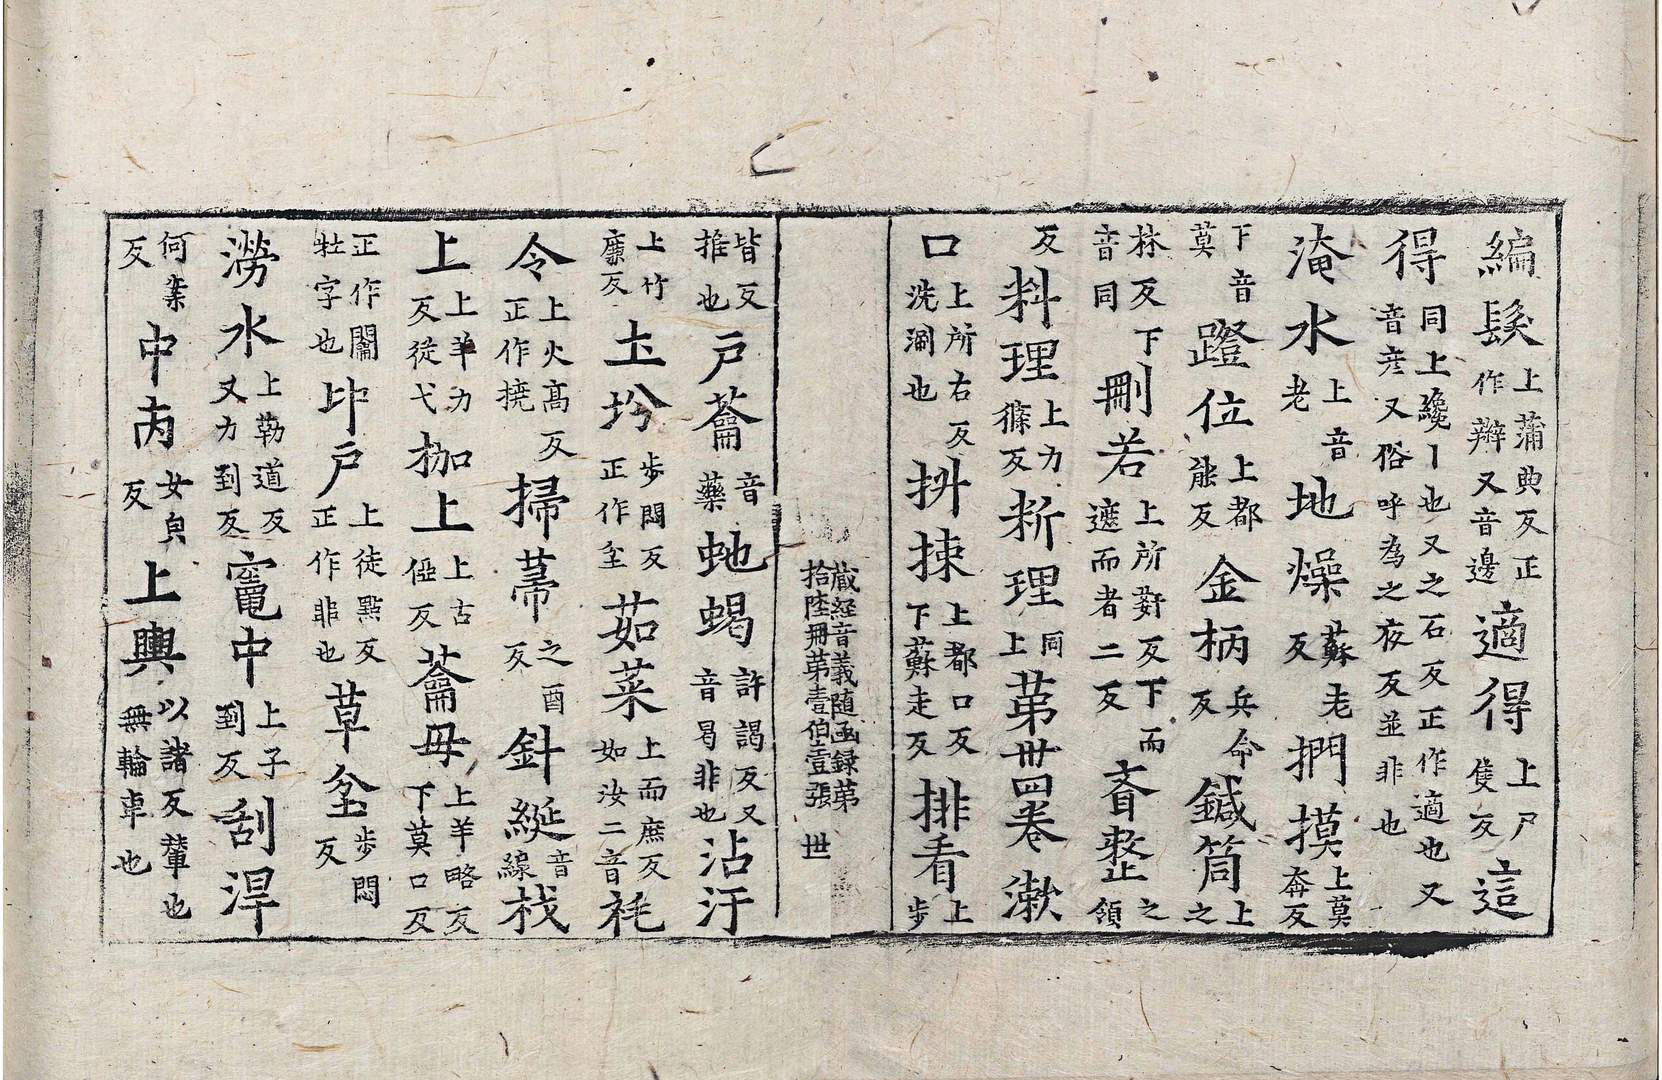 編髮上蒲典反正作辮又音邊適得上尸隻反這
得同上纔丨也又之石反正作適也又音彥又俗呼為之夜反並非也
淹水上音老地燥蘇老反捫摸上莫奔反
下音莫蹬位上都能反金柄兵命反鍼筒上之
林反下音同刪若上所姧反下而遮而者二反斎整之領
反料理上力篠反新理同上第卅四卷漱
口上所右反洗涮也抖揀上都口反下蘇走反排看上步
藏經音義随函録第拾陸冊第壹伯壹張 世
皆反推也戸蘥音藥虵蝎許謁反又音曷非也沾汙
上竹廉反土坋步悶反正作坌茹菜上而庶反如汝二音秏
令上火高反正作撓掃菷之酉反針綖音線栈
上上羊力反從弋枷上上古俹反蘥毋上羊略反下莫口反
正作闟牡字也㘝戸上徒點反正作非也草坌步悶反
澇水上勒道反又力到反竈中上子到反刮淂
何案反中肉女六反上輿以諸反輦也無輪車也